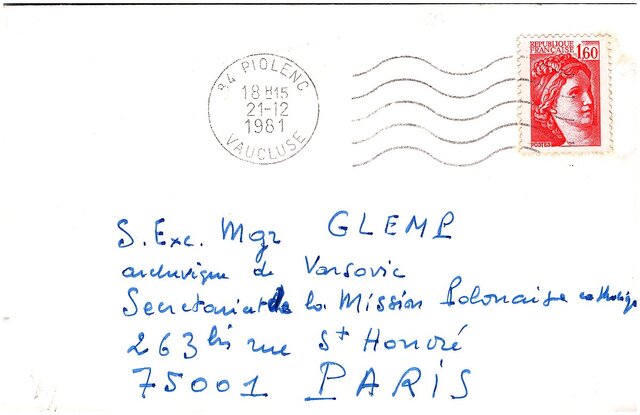 84 PIOLENC
18 H15
21-12
1981
VAUCLUSE
REPUBLIQUE
FRANÇAISE
1,60
POSTES
S. Exc. Mgr GLEMP
archevêque de Varsovie
Secretariat de la Mission Polonaise catholique
263 bis rue St Honoré
75001 PARIS